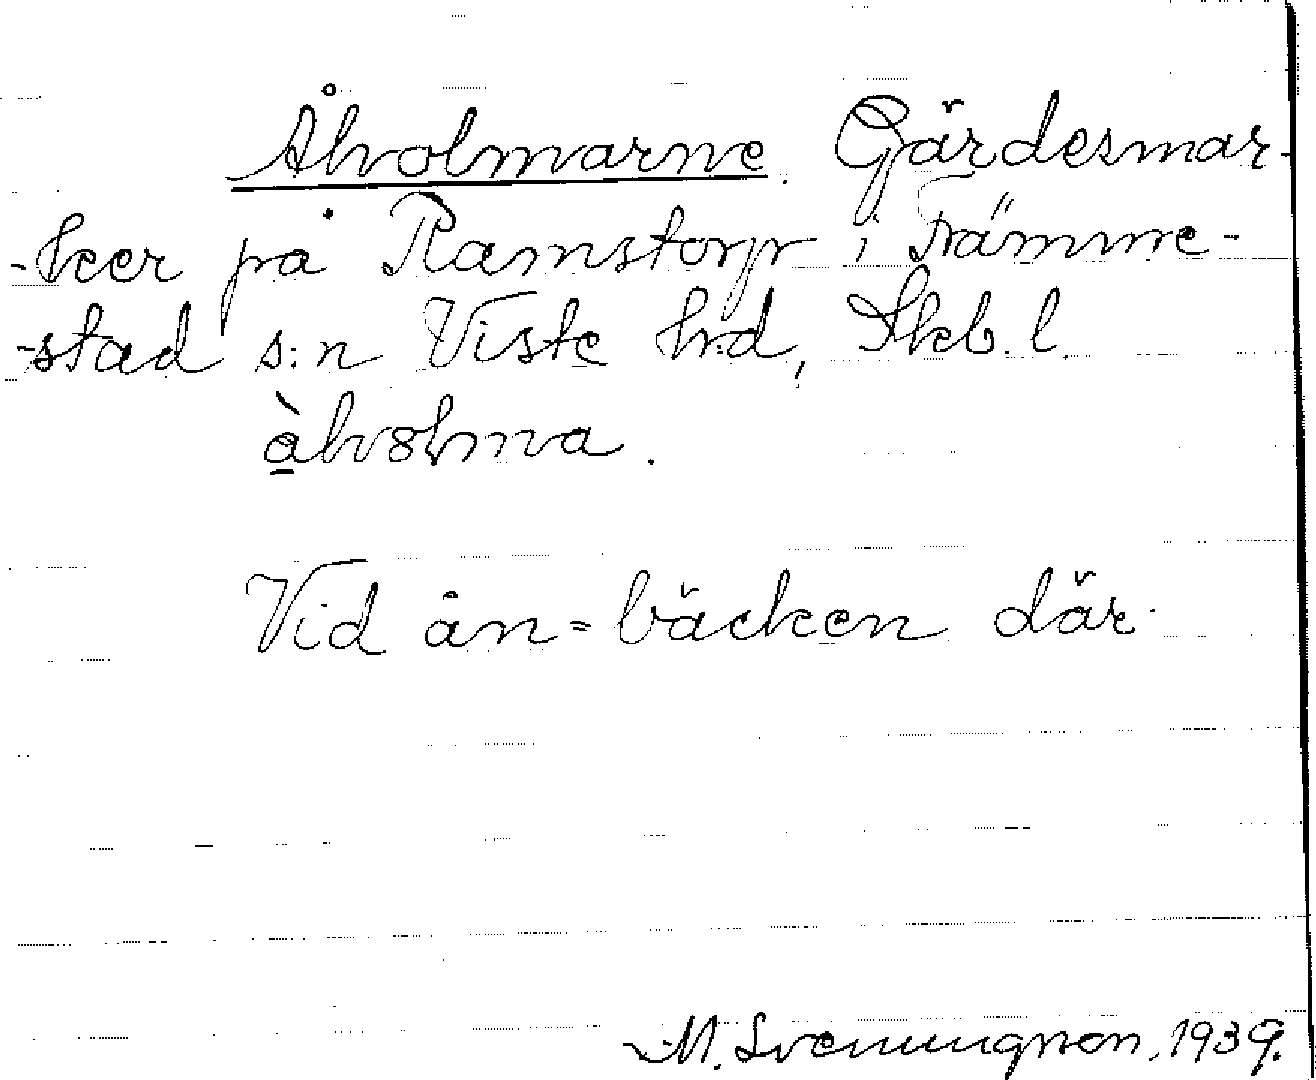 Åholmarne. Gärdesmar-
-ker på Ramstorp i Trämme-
-stad s:n Viste hd, Skb. l.
åhɵłma.
Vid ån=bäcken där.
M. Svenungson, 1939.